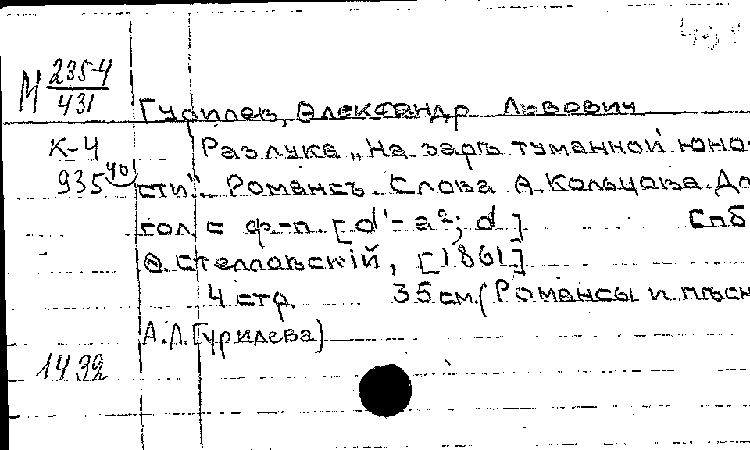 М 2354/431
Гурилев, Александр Львович
К-4 Разлука „На заре туманной юно-
935 40 сти". Романсъ. Слова А. Кольцова. Дл
гол с ф-п. [d'-a²; d] Спб
Ѳ. Стелловскій, [1861]
4 стр. 35 см. (Романсы и пѣсн
А.Л. Гурилева)
1492